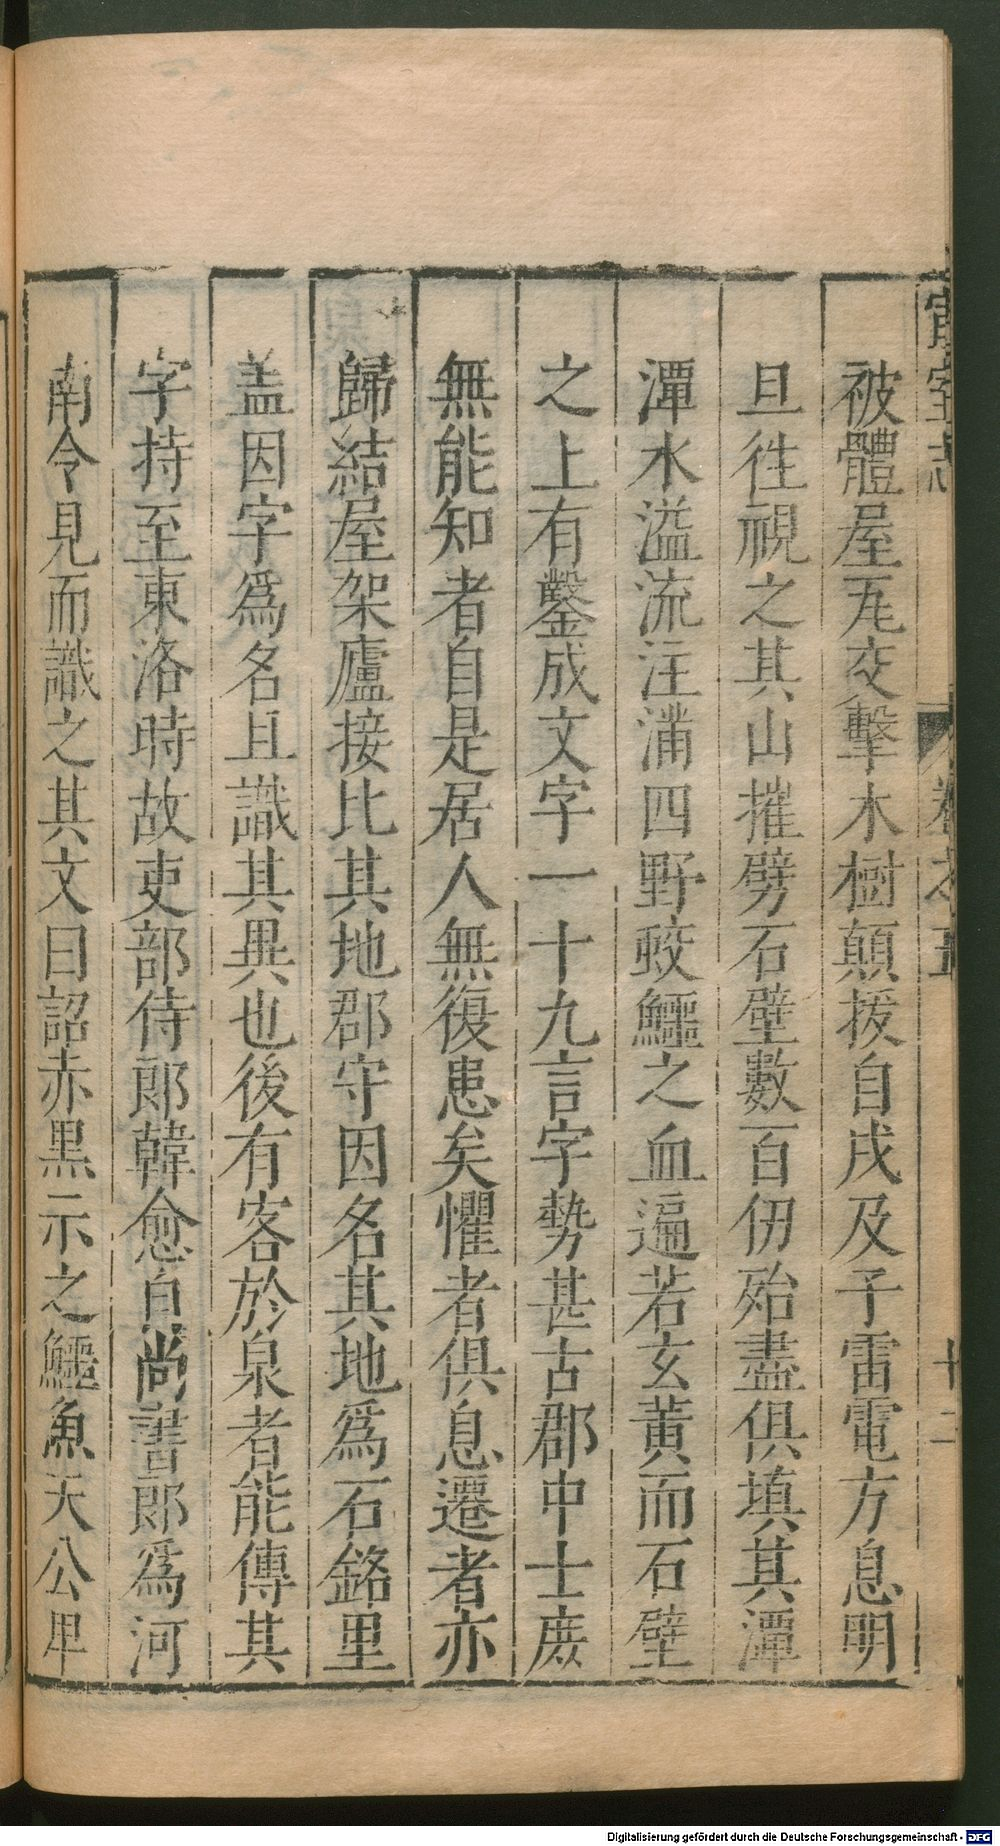 宣室志 卷之五 十二
被體屋瓦交擊木樹顛拔自戌及子雷電方息明
旦徃視之其山摧劈石壁數百仞殆盡俱填其潭
潭水溢流注滿四野蛟鱷之血遍若玄黃而石壁
之上有鑿成文字一十九言字勢甚古郡中士庻
無能知者自是居人無復患矣懼者俱息遷者亦
歸結屋架廬接比其地郡守因名其地爲石銘里
盖因字爲名且識其異也後有客於泉者能傳其
字持至東洛時故吏部侍郎韓愈自尚書郎爲河
南令見而識之其文曰詔赤黑示之鱷魚天公卑
Digitalisierung gefördert durch die Deutsche Forschungsgemeinschaft - DFG